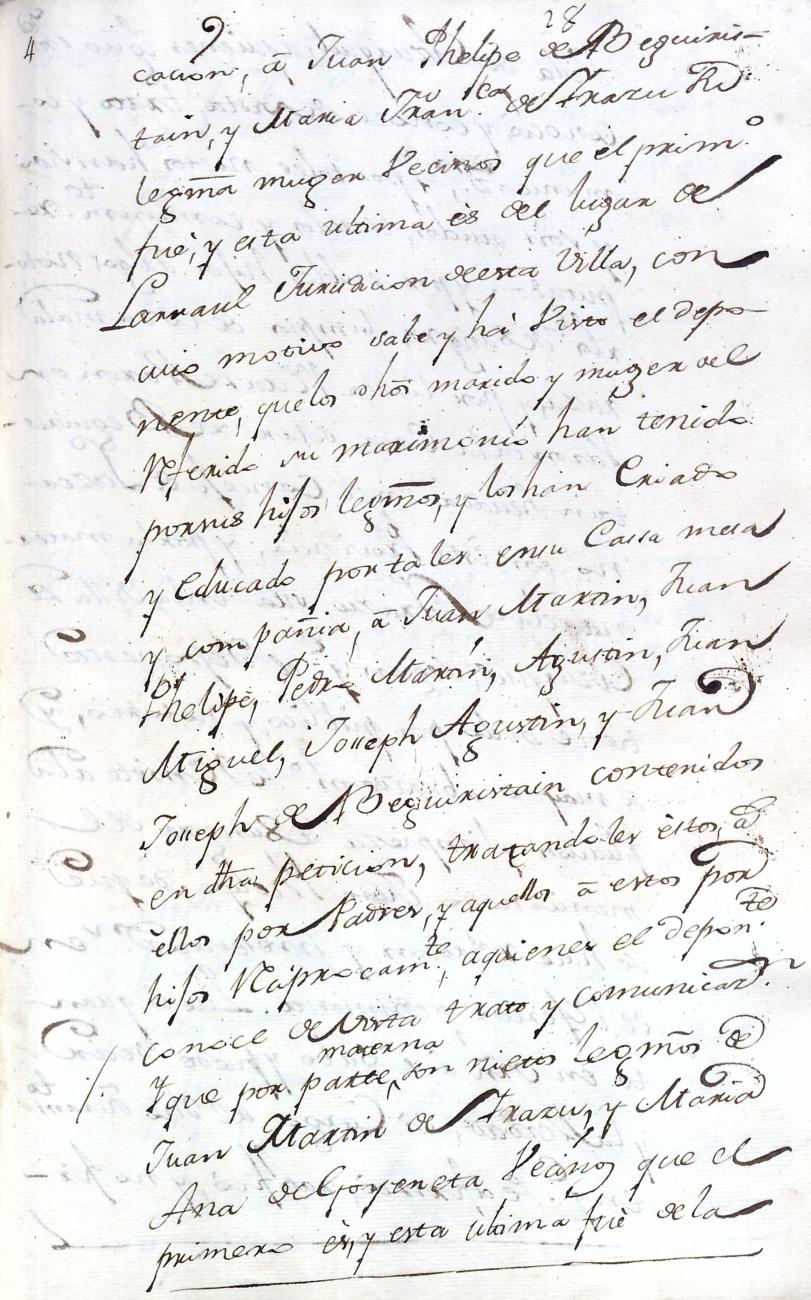 4
28
cacion, a Juan Phelipe de Beguiris-
tain, y Maria Fran.ca de Yrazu su
legma muger Vecinos que el prim.o
fuè, y esta ultima ès del lugar de
Larraul Jurisdicion de esta Villa, con
cuio motivo sabe y há Visto el depo-
nente, que los dhos marido y muger del
referido su matrimonio han tenido
por sus hijos legmos, y los han Criado
y Educado por tales en su Cassa mesa
y compañia, â Juan Martin, Juan
Phelipe, Pedro Martin, Agustin, Juan
Miguel, Joseph Agustin, y Juan
Joseph de Beguiristain contenidos
en dha peticion, tratandoles èstos, a
èllos por Padres, y aquellos â estos por
hijos Reciprocam.te, aquienes el depon.te
conoce de Vista trato y comunicaz.n.
Y que por parte materna son nietos legmos de
Juan Martin de Yrazu, y Maria
Ana de Goyeneta Vecinos que el
primero ès, y esta ultima fuè de la